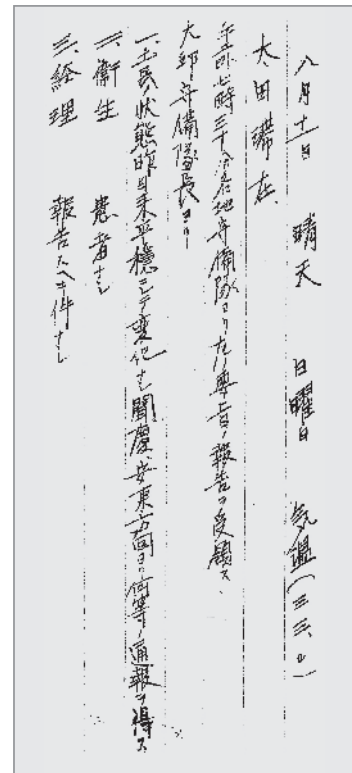 八月十一日 晴天 日曜日 気温(三三、〇)
大田滞在、
午前七時三十分各地守備隊ヨリ左ノ要旨ノ報告ヲ受領ス、
大邱守備隊長ヨリ
一、土民ノ状態昨日来平穏ニシテ変化ナシ聞慶、安東方面ヨリ何等ノ通報ヲ得ス
二、衛生 患者ナシ
三、経理 報告スヘキ件ナシ